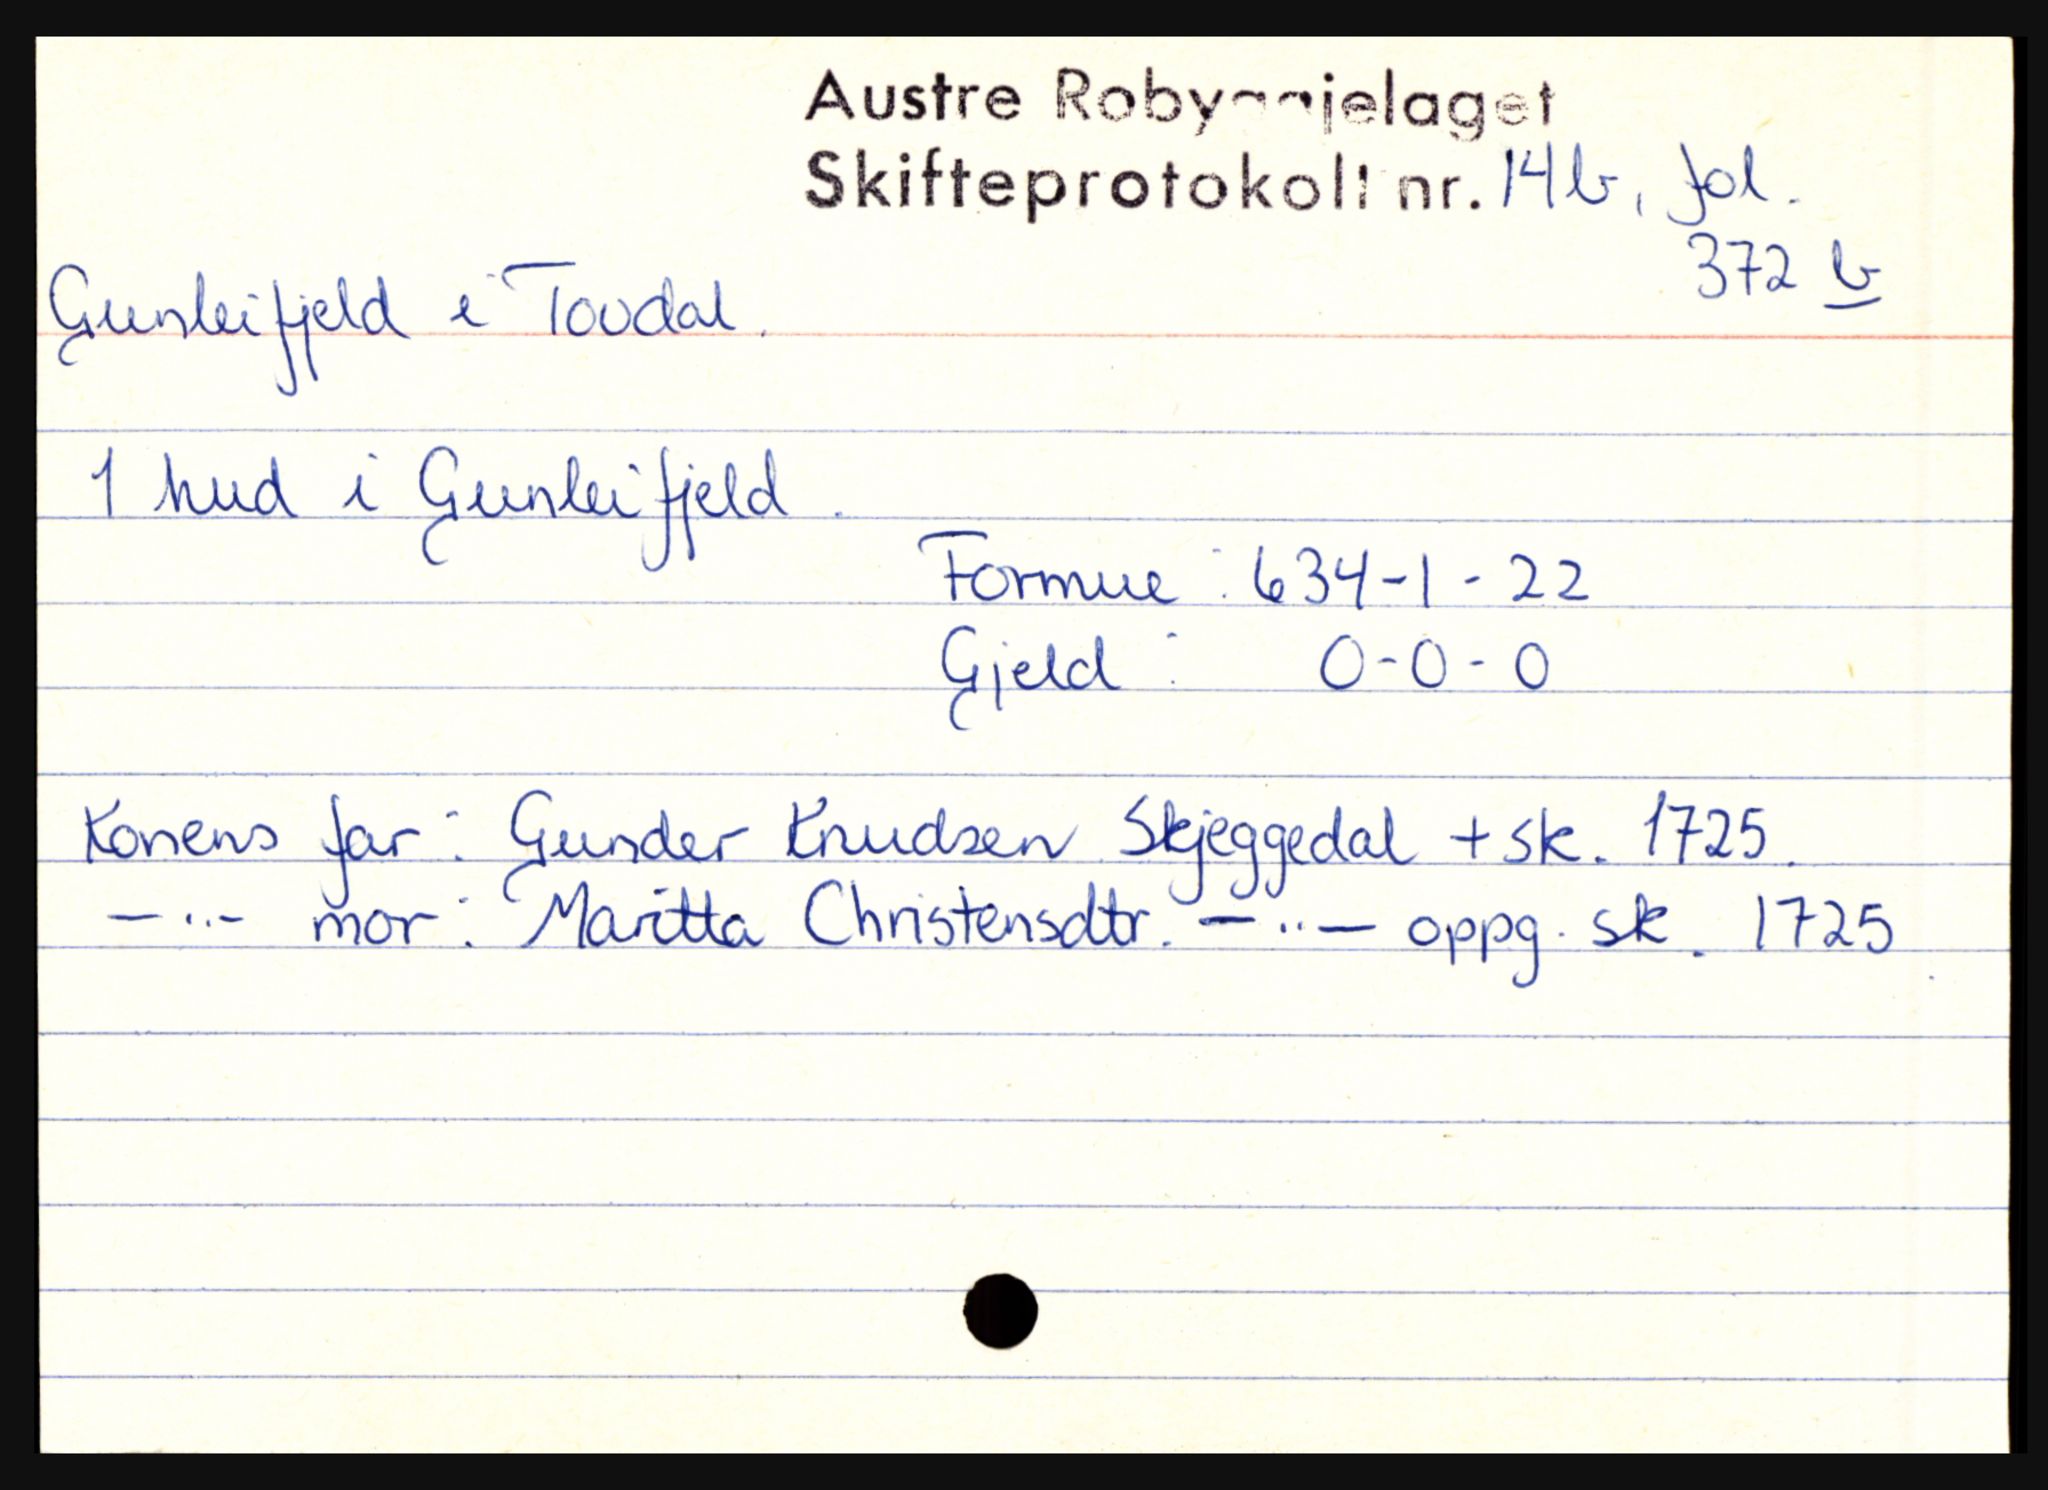 Austre Robyggjelaget
Skifteprotokoll nr. 14b, fol.
372 b
Gunleifjeld i Tovdal.
1 hud i Gunleifjeld.
Formue: 634-1-22
Gjeld: 0-0-0
Konens far: Gunder Knudsen Skjeggedal + sk. 1725.
—"— mor: Maritta Christensdtr. —"— oppg. sk. 1725